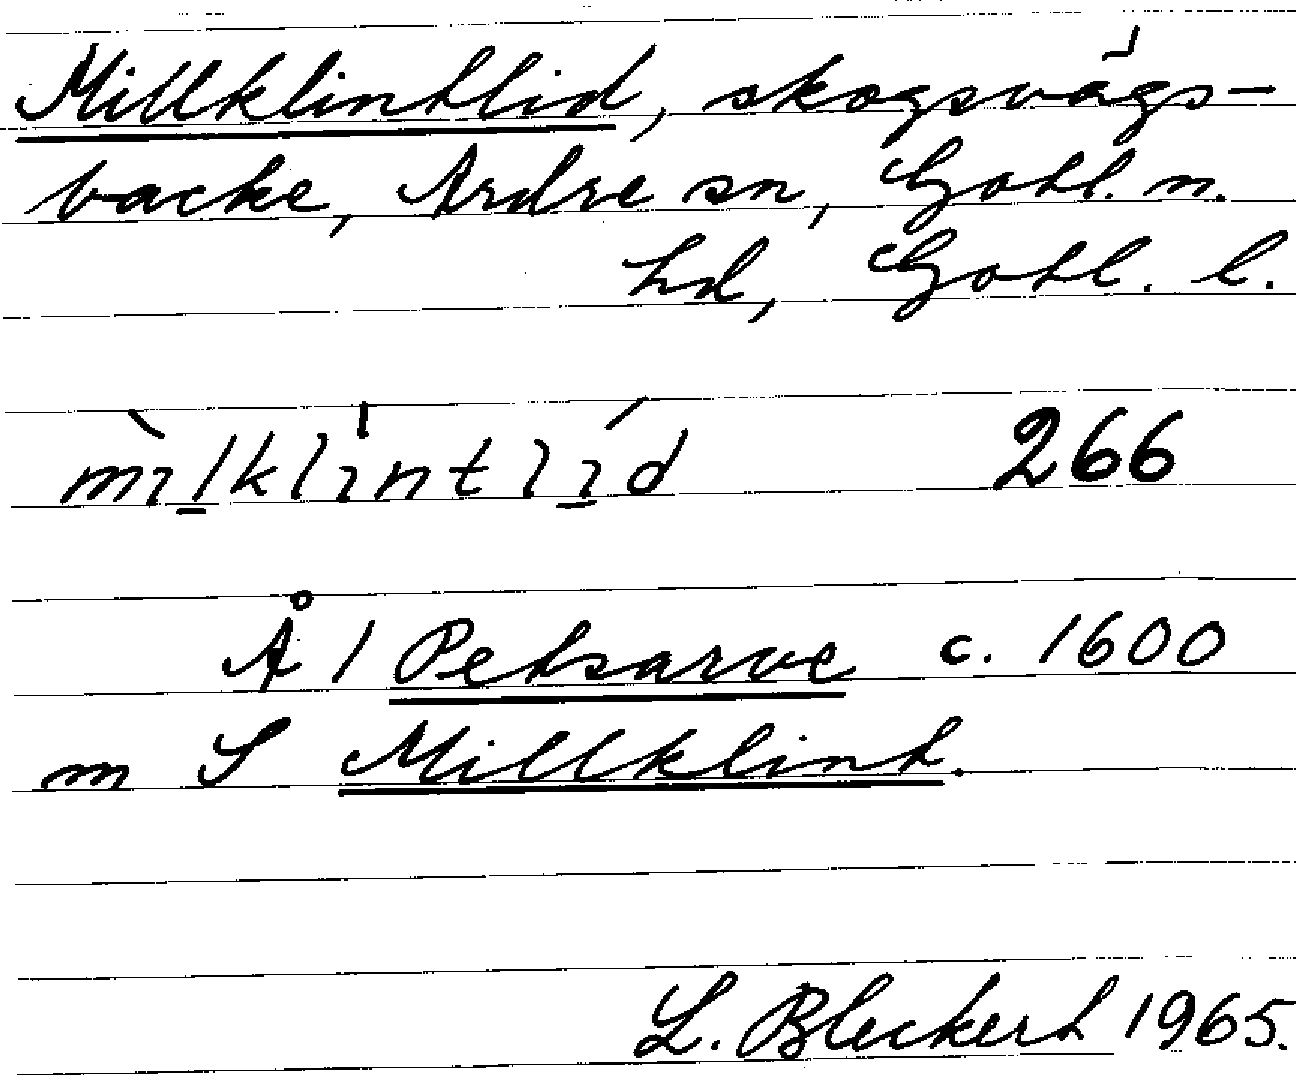 Millklintlid, skogsvägs-
backe, Ardre sn, Gotl. n.
hd, Gotl. l.
mı̀lklı̍ntlı́d 266
Å 1 Petsarve c. 1600
m S Millklint.
L. Bleckert 1965.